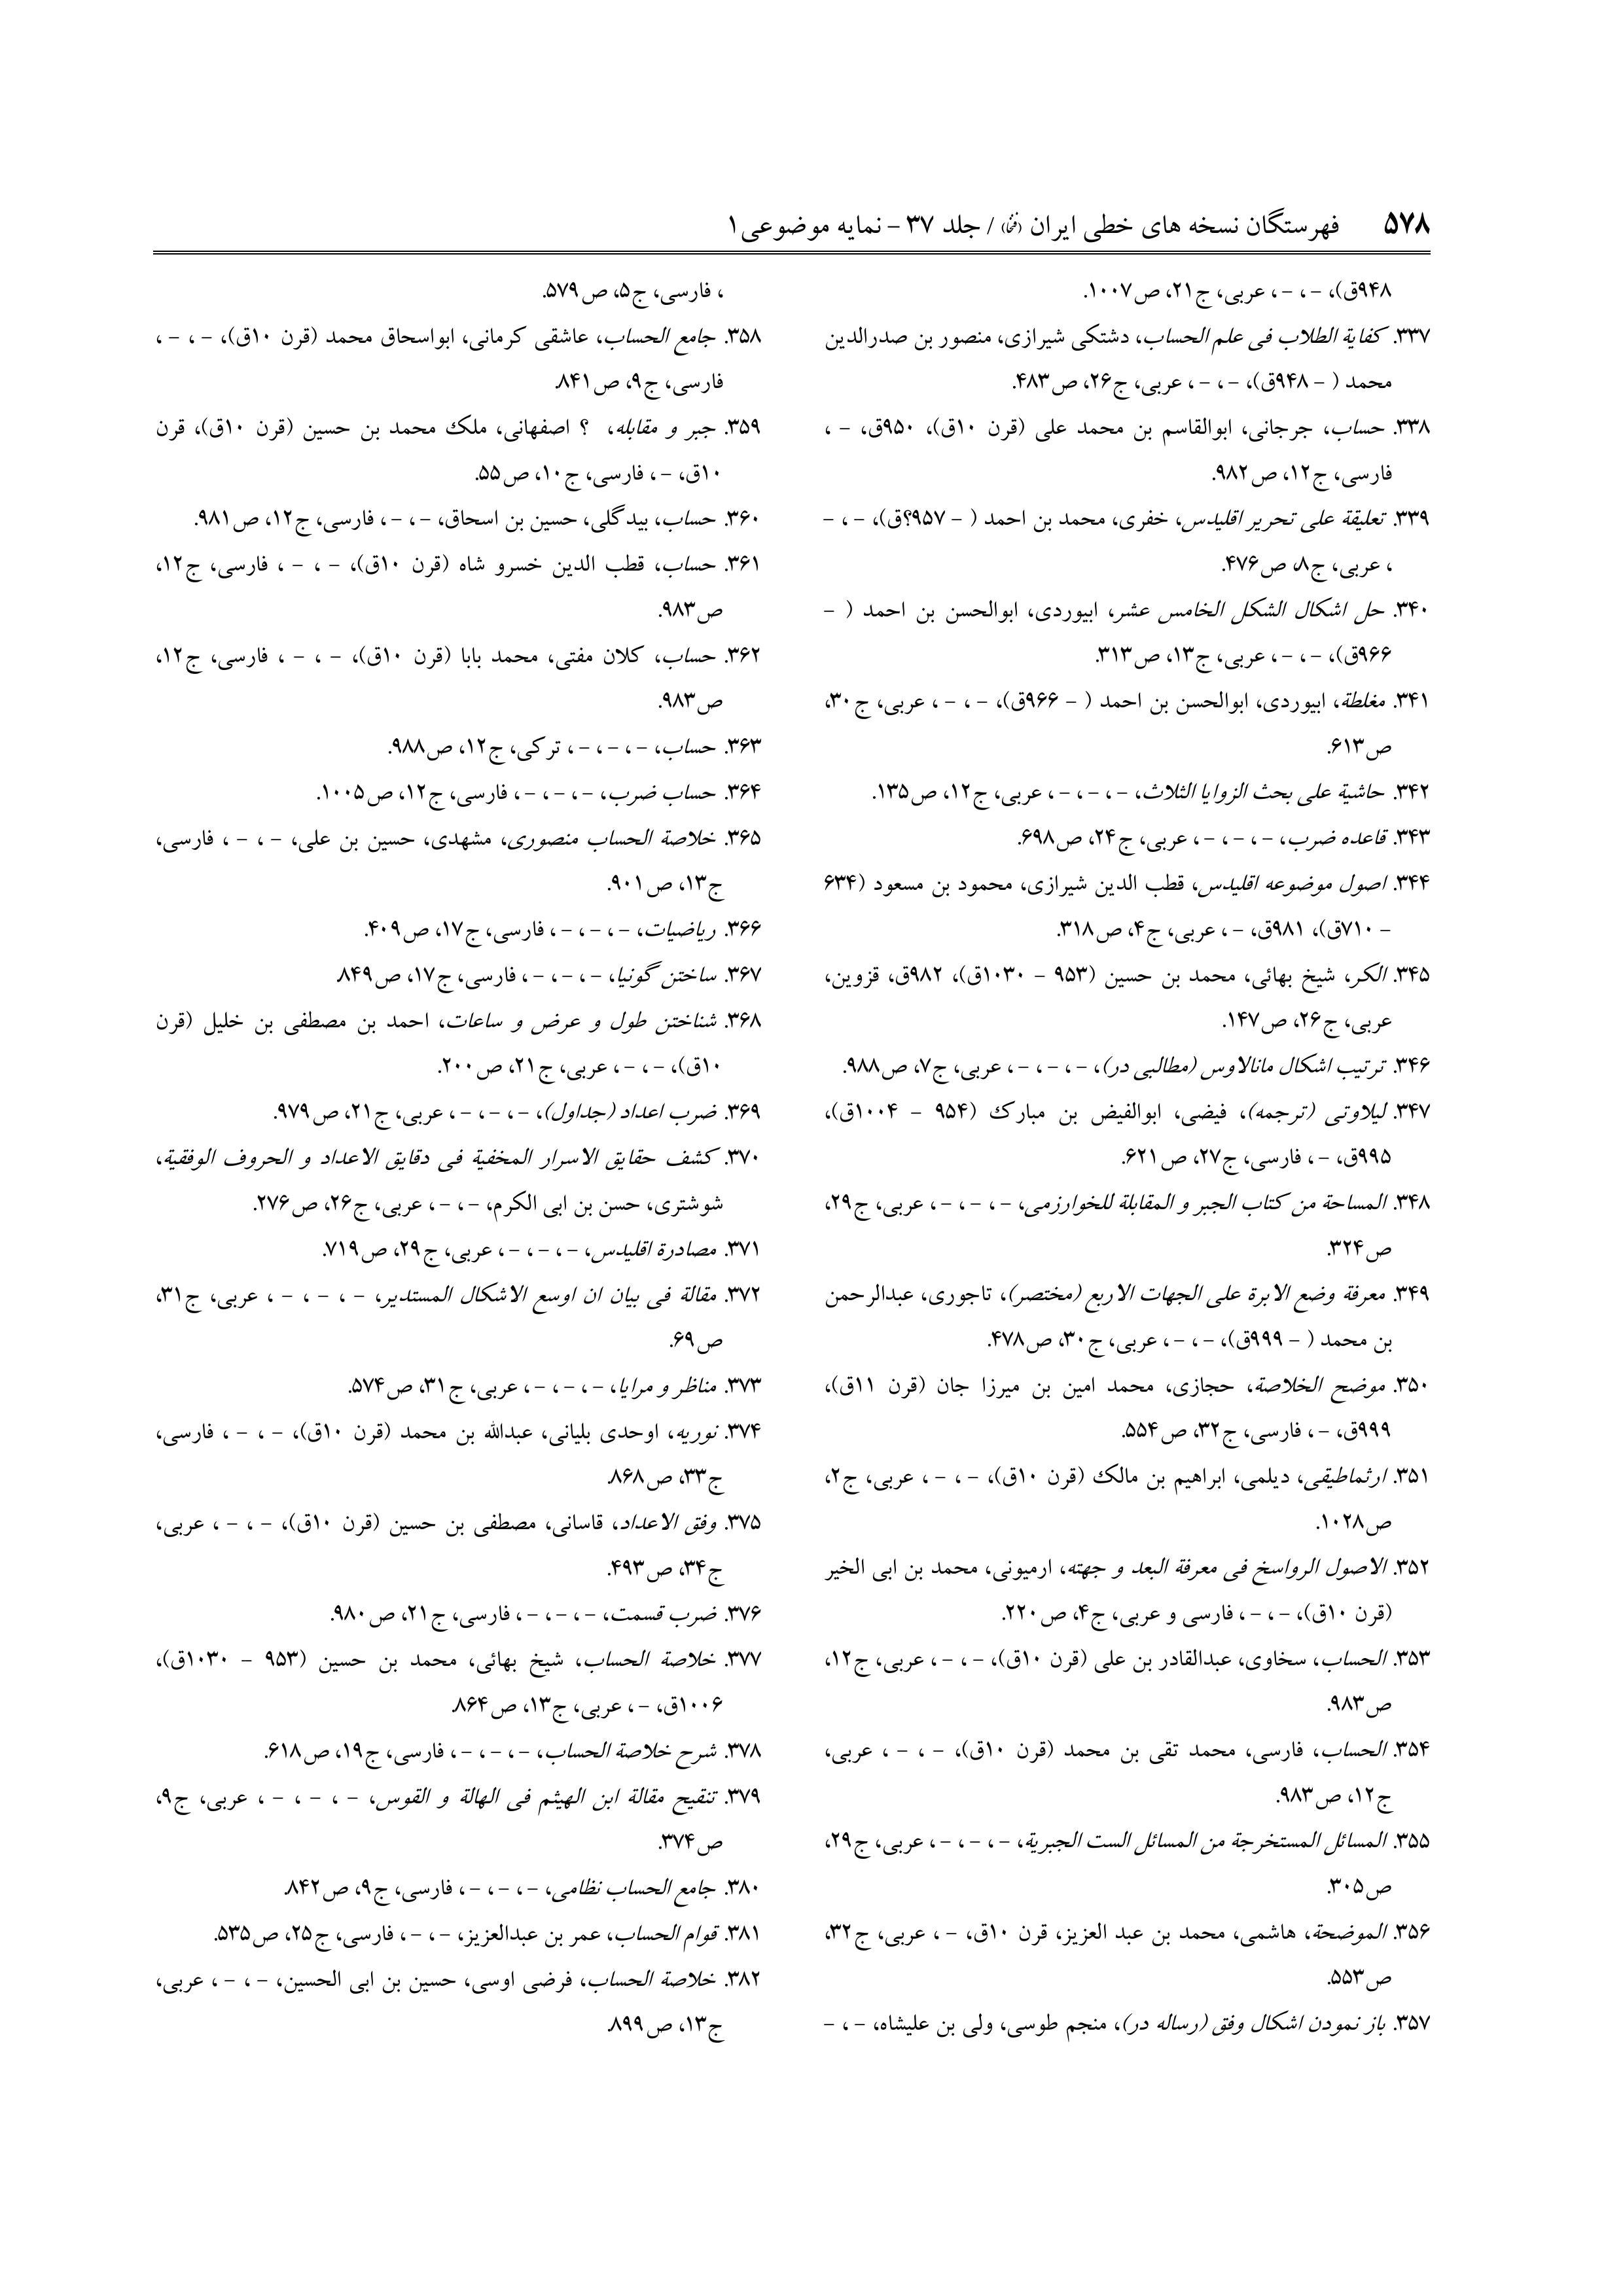 ۵۷۸ فهرستگان نسخه های خطی ایران (فنخا) / جلد ۳۷ - نمایه موضوعی۱
۹۴۸ق)، -، -، عربی، ج۲۱، ص۱۰۰۷.
۳۳۷. کفایة الطلاب فی علم الحساب، دشتکی شیرازی، منصور بن صدرالدین
محمد ( - ۹۴۸ق)، -، -، عربی، ج۲۶، ص۴۸۳.
۳۳۸. حساب، جرجانی، ابوالقاسم بن محمد علی (قرن ۱۰ق)، ۹۵۰ق، - ،
فارسی، ج۱۲، ص۹۸۲.
۳۳۹. تعلیقة علی تحریر اقلیدس، خفری، محمد بن احمد ( - ۹۵۷؟ق)، -، -
، عربی، ج۸، ص۴۷۶.
۳۴۰. حل اشکال الشکل الخامس عشر، ابیوردی، ابوالحسن بن احمد ( -
۹۶۶ق)، -، -، عربی، ج۱۳، ص۳۱۳.
۳۴۱. مغلطة، ابیوردی، ابوالحسن بن احمد ( - ۹۶۶ق)، -، - ، عربی، ج۳۰،
ص۶۱۳.
۳۴۲. حاشیة علی بحث الزوایا الثلاث، -، -، -، عربی، ج۱۲، ص۱۳۵.
۳۴۳. قاعده ضرب، -، -، -، عربی، ج۲۴، ص۶۹۸.
۳۴۴. اصول موضوعه اقلیدس، قطب الدین شیرازی، محمود بن مسعود (۶۳۴
- ۷۱۰ق)، ۹۸۱ق، -، عربی، ج۴، ص۳۱۸.
۳۴۵. الکر، شیخ بهائی، محمد بن حسین (۹۵۳ - ۱۰۳۰ق)، ۹۸۲ق، قزوین،
عربی، ج۲۶، ص۱۴۷.
۳۴۶. ترتیب اشکال مانالاوس (مطالبی در)، -، -، -، عربی، ج۷، ص۹۸۸.
۳۴۷. لیلاوتی (ترجمه)، فیضی، ابوالفیض بن مبارک (۹۵۴ - ۱۰۰۴ق)،
۹۹۵ق، -، فارسی، ج۲۷، ص۶۲۱.
۳۴۸. المساحة من کتاب الجبر و المقابلة للخوارزمی، -، -، -، عربی، ج۲۹،
ص۳۲۴.
۳۴۹. معرفة وضع الابرة علی الجهات الاربع (مختصر)، تاجوری، عبدالرحمن
بن محمد ( - ۹۹۹ق)، -، -، عربی، ج۳۰، ص۴۷۸.
۳۵۰. موضح الخلاصة، حجازی، محمد امین بن میرزا جان (قرن ۱۱ق)،
۹۹۹ق، -، فارسی، ج۳۲، ص۵۵۴.
۳۵۱. ارثماطیقی، دیلمی، ابراهیم بن مالک (قرن ۱۰ق)، -، - ، عربی، ج۲،
ص۱۰۲۸.
۳۵۲. الاصول الرواسخ فی معرفة البعد و جهته، ارمیونی، محمد بن ابی الخیر
(قرن ۱۰ق)، -، -، فارسی و عربی، ج۴، ص۲۲۰.
۳۵۳. الحساب، سخاوی، عبدالقادر بن علی (قرن ۱۰ق)، -، -، عربی، ج۱۲،
ص۹۸۳.
۳۵۴. الحساب، فارسی، محمد تقی بن محمد (قرن ۱۰ق)، - ، - ، عربی،
ج۱۲، ص۹۸۳.
۳۵۵. المسائل المستخرجة من المسائل الست الجبریة، -، -، -، عربی، ج۲۹،
ص۳۰۵.
۳۵۶. الموضحة، هاشمی، محمد بن عبد العزیز، قرن ۱۰ق، - ، عربی، ج۳۲،
ص۵۵۳.
۳۵۷. باز نمودن اشکال وفق (رساله در)، منجم طوسی، ولی بن علیشاه، -، -
، فارسی، ج۵، ص۵۷۹.
۳۵۸. جامع الحساب، عاشقی کرمانی، ابواسحاق محمد (قرن ۱۰ق)، -، - ،
فارسی، ج۹، ص۸۴۱.
۳۵۹. جبر و مقابله، ؟ اصفهانی، ملک محمد بن حسین (قرن ۱۰ق)، قرن
۱۰ق، -، فارسی، ج۱۰، ص۵۵.
۳۶۰. حساب، بیدگلی، حسین بن اسحاق، -، -، فارسی، ج۱۲، ص۹۸۱.
۳۶۱. حساب، قطب الدین خسرو شاه (قرن ۱۰ق)، - ، - ، فارسی، ج۱۲،
ص۹۸۳.
۳۶۲. حساب، کلان مفتی، محمد بابا (قرن ۱۰ق)، - ، - ، فارسی، ج۱۲،
ص۹۸۳.
۳۶۳. حساب، -، -، -، ترکی، ج۱۲، ص۹۸۸.
۳۶۴. حساب ضرب، -، -، -، فارسی، ج۱۲، ص۱۰۰۵.
۳۶۵. خلاصة الحساب منصوری، مشهدی، حسین بن علی، -، - ، فارسی،
ج۱۳، ص۹۰۱.
۳۶۶. ریاضیات، -، -، -، فارسی، ج۱۷، ص۴۰۹.
۳۶۷. ساختن گونیا، -، -، -، فارسی، ج۱۷، ص۸۴۹.
۳۶۸. شناختن طول و عرض و ساعات، احمد بن مصطفی بن خلیل (قرن
۱۰ق)، -، -، عربی، ج۲۱، ص۲۰۰.
۳۶۹. ضرب اعداد (جداول)، -، -، -، عربی، ج۲۱، ص۹۷۹.
۳۷۰. کشف حقایق الاسرار المخفیة فی دقایق الاعداد و الحروف الوفقیة،
شوشتری، حسن بن ابی الکرم، -، -، عربی، ج۲۶، ص۲۷۶.
۳۷۱. مصادرة اقلیدس، -، -، -، عربی، ج۲۹، ص۷۱۹.
۳۷۲. مقالة فی بیان ان اوسع الاشکال المستدیر، - ، - ، - ، عربی، ج۳۱،
ص۶۹.
۳۷۳. مناظر و مرایا، -، -، -، عربی، ج۳۱، ص۵۷۴.
۳۷۴. نوریه، اوحدی بلیانی، عبدالله بن محمد (قرن ۱۰ق)، -، - ، فارسی،
ج۳۳، ص۸۶۸.
۳۷۵. وفق الاعداد، قاسانی، مصطفی بن حسین (قرن ۱۰ق)، -، - ، عربی،
ج۳۴، ص۴۹۳.
۳۷۶. ضرب قسمت، -، -، -، فارسی، ج۲۱، ص۹۸۰.
۳۷۷. خلاصة الحساب، شیخ بهائی، محمد بن حسین (۹۵۳ - ۱۰۳۰ق)،
۱۰۰۶ق، -، عربی، ج۱۳، ص۸۶۴.
۳۷۸. شرح خلاصة الحساب، -، -، -، فارسی، ج۱۹، ص۶۱۸.
۳۷۹. تنقیح مقالة ابن الهیثم فی الهالة و القوس، - ، - ، - ، عربی، ج۹،
ص۳۷۴.
۳۸۰. جامع الحساب نظامی، -، -، -، فارسی، ج۹، ص۸۴۲.
۳۸۱. قوام الحساب، عمر بن عبدالعزیز، -، -، فارسی، ج۲۵، ص۵۳۵.
۳۸۲. خلاصة الحساب، فرضی اوسی، حسین بن ابی الحسین، -، - ، عربی،
ج۱۳، ص۸۹۹.